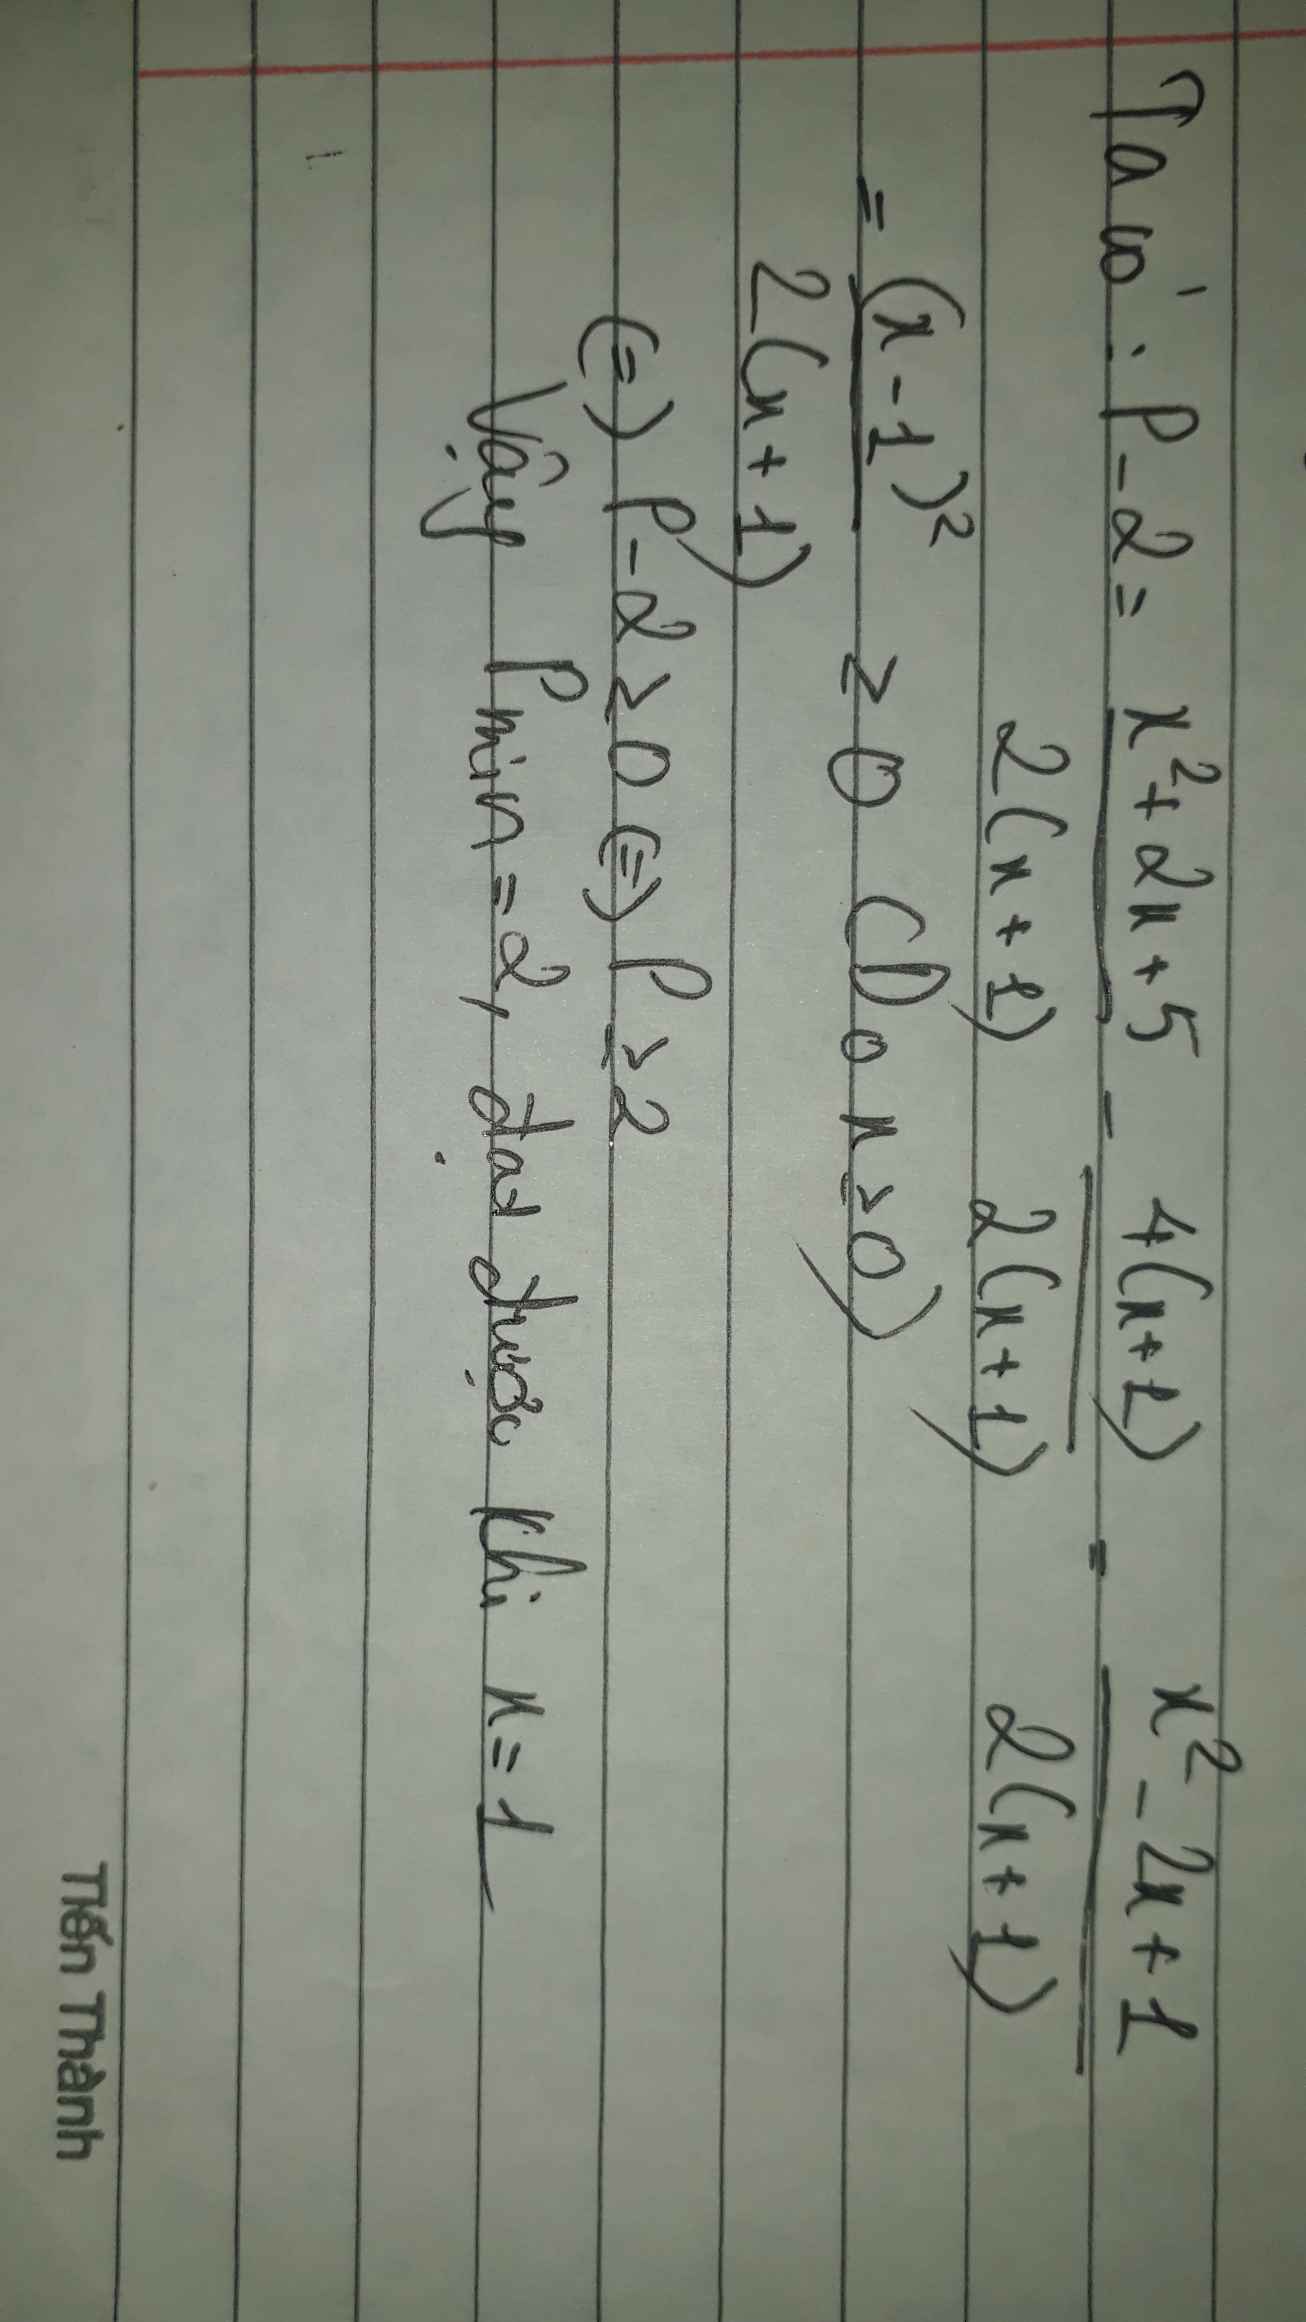 Ta có: P - 2 = (x² + 2x + 5)/(2(x + 1)) - (4(x + 1))/(2(x + 1)) = (x² - 2x + 1)/(2(x + 1))
= (x - 1)²/(2(x + 1)) ≥ 0 (Do x ≥ 0)
(=) P - 2 ≥ 0 (=) P ≥ 2
Vậy Pmin = 2, đạt được khi x = 1
Tiến Thành